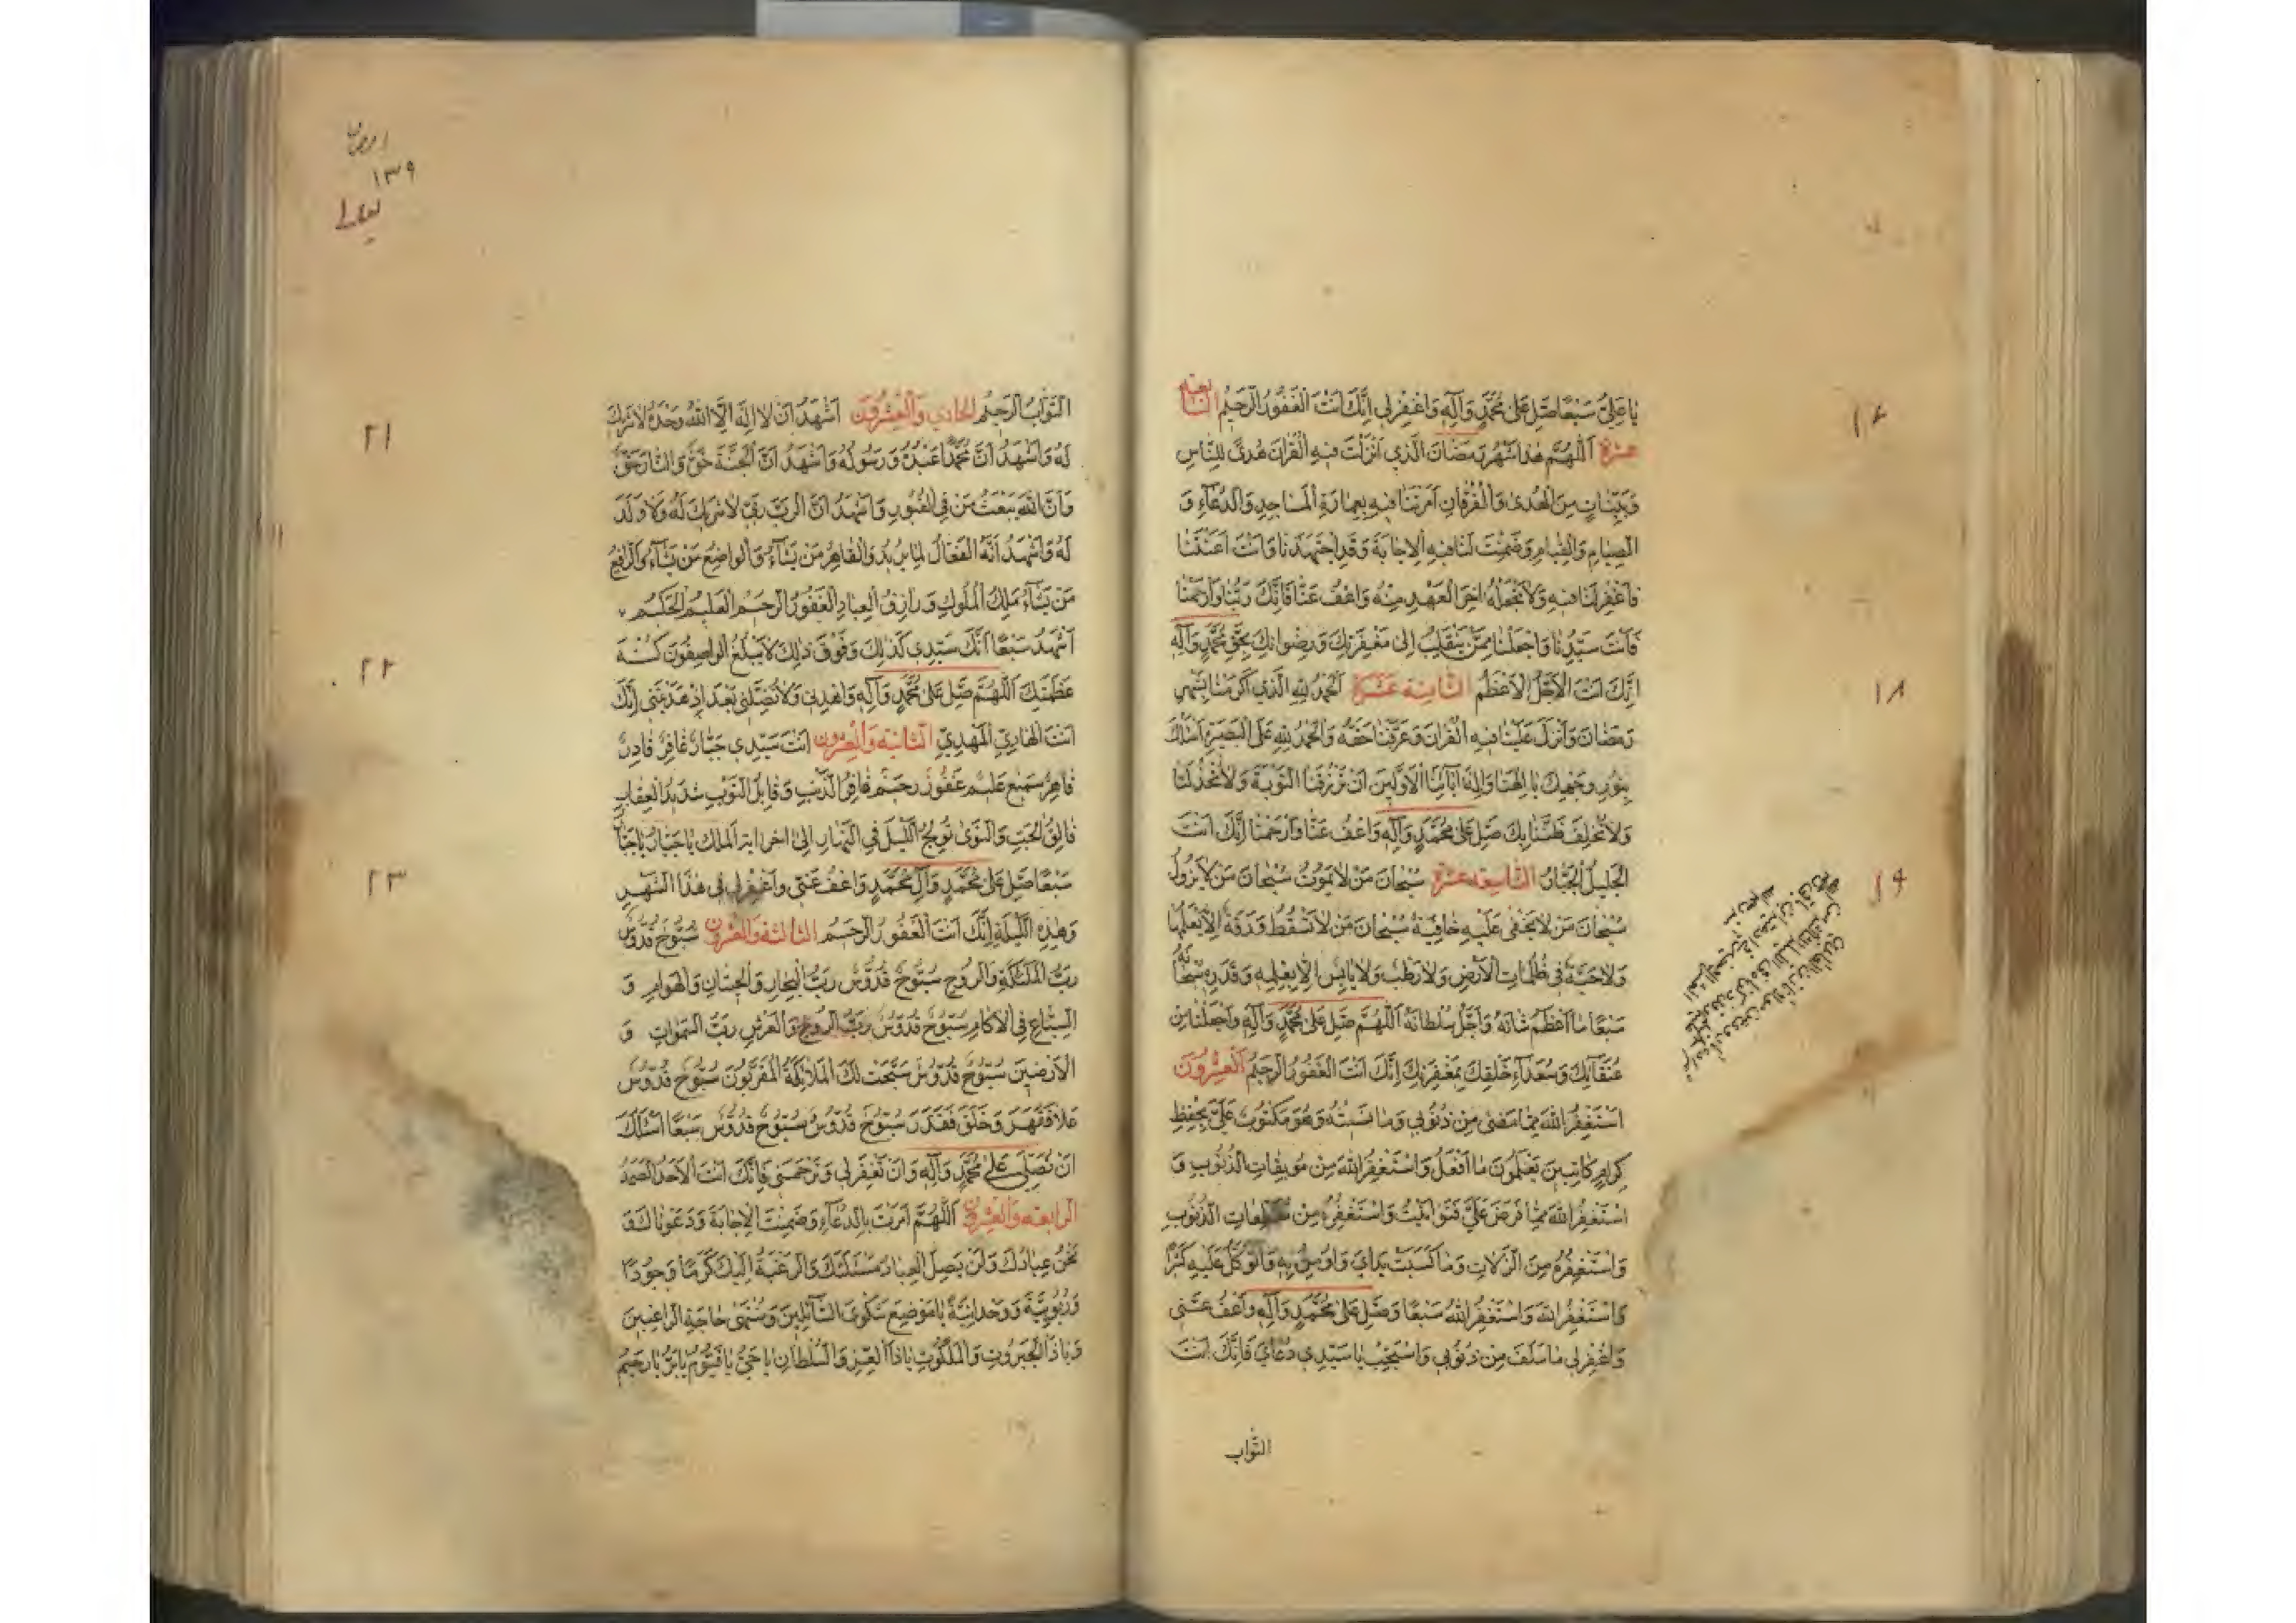 يا عَلِيُّ سَبْعًا صَلِّ عَلى مُحَمَّدٍ وَآلِهِ وَاغْفِرْ لي اِنَّكَ اَنْتَ الْغَفُورُ الرَّحيمُ السّابعة
عشرة اَللّهُمَّ هٰذا شَهْرُ رَمَضانَ الَّذي اَنْزَلْتَ فيهِ الْقُرْآنَ هُدىً لِلنّاسِ
وَبَيِّناتٍ مِنَ الْهُدى وَالْفُرْقانِ اَمَرْتَنا فيهِ بِعِمارَةِ الْمَساجِدِ وَالدُّعآءِ وَ
الصِّيامِ وَالْقِيامِ وَضَمِنْتَ لَنا فيهِ الْاِجابَةَ وَقَدِ اجْتَهَدْنا وَاَنْتَ اَعَنْتَنا
فَاغْفِرْ لَنا فيهِ وَلا تَجْعَلْهُ اخِرَ الْعَهْدِ مِنْهُ وَاعْفُ عَنّا فَاِنَّكَ رَبُّنا وَارْحَمْنا
فَاَنْتَ سَيِّدُنا وَاجْعَلْنا مِمَّنْ يَنْقَلِبُ اِلى مَغْفِرَتِكَ وَرِضْوانِكَ بِحَقِّ مُحَمَّدٍ وَآلِهِ
اِنَّكَ اَنْتَ الْاَجَلُّ الْاَعْظَمُ الثّامنة عشرة اَلْحَمْدُ لِلّهِ الَّذي اَكْرَمَنا بِشَهْرِ
رَمَضانَ وَاَنْزَلَ عَلَيْنا فيهِ الْقُرْآنَ وَعَرَّفَنا حَقَّهُ وَالْحَمْدُ لِلّهِ عَلَى الْبَصيرَةِ اَسْاَلُكَ
بِنُورِ وَجْهِكَ يا اِلهَنا وَاِلهَ آبآئِنَا الْاَوَّلينَ اَنْ تَرْزُقَنَا التَّوْبَةَ وَلا تَخْذُلَنا
وَلا تُخْلِفَ ظَنَّنا بِكَ صَلِّ عَلى مُحَمَّدٍ وَآلِهِ وَاعْفُ عَنّا وَارْحَمْنا اِنَّكَ اَنْتَ
الْجَليلُ الْجَبّارُ التّاسعة عشرة سُبْحانَ مَنْ لا يَمُوتُ سُبْحانَ مَنْ لا يَزُولُ
سُبْحانَ مَنْ لا يَخْفى عَلَيْهِ خافِيَةٌ سُبْحانَ مَنْ لا تَسْقُطُ وَرَقَةٌ اِلّا يَعْلَمُها
وَلا حَبَّةٌ في ظُلُماتِ الْاَرْضِ وَلا رَطْبٌ وَلا يابِسٌ اِلّا بِعِلْمِهِ وَقَدَرِهِ سُبْحانَهُ
سَبْعًا ما اَعْظَمَ شَانَهُ وَاَجَلَّ سُلْطانَهُ اَللّهُمَّ صَلِّ عَلى مُحَمَّدٍ وَآلِهِ وَاجْعَلْنا مِنْ
عُتَقآئِكَ وَسُعَدآءِ خَلْقِكَ بِمَغْفِرَتِكَ اِنَّكَ اَنْتَ الْغَفُورُ الرَّحيمُ الْعِشْرُونَ
اَسْتَغْفِرُ اللهَ مِمّا مَضى مِنْ ذُنُوبي وَما نَسيتُهُ وَهُوَ مَكْتُوبٌ عَلَيَّ بِحِفْظِ
كِرامٍ كاتِبينَ يَعْلَمُونَ ما اَفْعَلُ وَاَسْتَغْفِرُ اللهَ مِنْ مُوبِقاتِ الذُّنُوبِ وَ
اَسْتَغْفِرُ اللهَ مِمّا فَرَضَ عَلَيَّ فَتَوانَيْتُ وَاَسْتَغْفِرُهُ مِنْ مُفْظِعاتِ الذُّنُوبِ
وَاَسْتَغْفِرُهُ مِنَ الزَّلّاتِ وَما كَسَبَتْ يَدايَ وَاُومِنُ بِهِ وَاَتَوَكَّلُ عَلَيْهِ كَثيرًا
وَاَسْتَغْفِرُ اللهَ وَاَسْتَغْفِرُ اللهَ سَبْعًا وَصَلِّ عَلى مُحَمَّدٍ وَآلِهِ وَاعْفُ عَنّي
وَاغْفِرْ لي ما سَلَفَ مِنْ ذُنُوبي وَاسْتَجِبْ يا سَيِّدي دُعآئي فَاِنَّكَ اَنْتَ
التّواب
١٨
١٩
١٣٩
التَّوّابُ الرَّحيمُ الحادي والعشرون اَشْهَدُ اَنْ لا اِلهَ اِلَّا اللهُ وَحْدَهُ لا شَريكَ
لَهُ وَاَشْهَدُ اَنَّ مُحَمَّدًا عَبْدُهُ وَرَسُولُهُ وَاَشْهَدُ اَنَّ الْجَنَّةَ حَقٌّ وَالنّارَ حَقٌّ
وَاَنَّ اللهَ يَبْعَثُ مَنْ فِي الْقُبُورِ وَاَشْهَدُ اَنَّ الرَّبَّ رَبّي لا شَريكَ لَهُ وَلا وَلَدَ
لَهُ وَاَشْهَدُ اَنَّهُ الْفَعّالُ لِما يُريدُ وَالْقاهِرُ مَنْ يَشآءُ وَالْواضِعُ مَنْ يَشآءُ وَالرّافِعُ
مَنْ يَشآءُ مَلِكُ الْمُلُوكِ وَرازِقُ الْعِبادِ الْغَفُورُ الرَّحيمُ الْعَليمُ الْحَكيمُ
اَشْهَدُ سَبْعًا اَنَّكَ سَيِّدي كَذلِكَ وَفَوْقَ ذلِكَ لا يَبْلُغُ الْواصِفُونَ كُنْهَ
عَظَمَتِكَ اَللّهُمَّ صَلِّ عَلى مُحَمَّدٍ وَآلِهِ وَاهْدِني وَلا تُضِلَّني بَعْدَ اِذْ هَدَيْتَني اِنَّكَ
اَنْتَ الْهادِي الْمَهْدِيُّ الثانية والعشرون اَنْتَ سَيِّدي جَبّارٌ غافِرٌ قادِرٌ
قاهِرٌ سَميعٌ عَليمٌ غَفُورٌ رَحيمٌ غافِرُ الذَّنْبِ وَقابِلُ التَّوْبِ شَديدُ الْعِقابِ
فالِقُ الْحَبِّ وَالنَّوى تُولِجُ اللَّيْلَ فِي النَّهارِ اِلى اخر اية الملك يا جَبّارُ يا جَبّارُ
سَبْعًا صَلِّ عَلى مُحَمَّدٍ وَآلِ مُحَمَّدٍ وَاعْفُ عَنّي وَاغْفِرْ لي في هٰذَا الشَّهْرِ
وَهٰذِهِ اللَّيْلَةِ اِنَّكَ اَنْتَ الْغَفُورُ الرَّحيمُ الثالثة والعشرون سُبُّوحٌ قُدُّوسٌ
رَبُّ الْمَلٰئِكَةِ وَالرُّوحِ سُبُّوحٌ قُدُّوسٌ رَبُّ الْبِحارِ وَالْحيتانِ وَالْهَوامِّ وَ
السِّباعِ فِي الْاكامِ سُبُّوحٌ قُدُّوسٌ رَبُّ الرُّوحِ وَالْعَرْشِ رَبُّ السَّمٰواتِ وَ
الْاَرَضينَ سُبُّوحٌ قُدُّوسٌ سَبَّحَتْ لَكَ الْمَلآئِكَةُ الْمُقَرَّبُونَ سُبُّوحٌ قُدُّوسٌ
عَلا فَقَهَرَ وَخَلَقَ فَقَدَرَ سُبُّوحٌ قُدُّوسٌ سُبُّوحٌ قُدُّوسٌ سَبْعًا اَسْئَلُكَ
اَنْ تُصَلِّيَ عَلى مُحَمَّدٍ وَآلِهِ وَاَنْ تَغْفِرَ لي وَتَرْحَمَني فَاِنَّكَ اَنْتَ الْاَحَدُ الصَّمَدُ
الرابعة والعشرون اَللّهُمَّ اَمَرْتَ بِالدُّعآءِ وَضَمِنْتَ الْاِجابَةَ وَدَعَوْناكَ وَ
نَحْنُ عِبادُكَ وَلَنْ يَصِلَ الْعِبادُ مَسْئَلَتَكَ وَالرَّغْبَةُ اِلَيْكَ كَرَمًا وَجُودًا
وَرُبُوبِيَّةً وَوَحْدانِيَّةً يا مَوْضِعَ شَكْوَى السّآئِلينَ وَمُنْتَهى حاجَةِ الرّاغِبينَ
وَيا ذَا الْجَبَرُوتِ وَالْمَلَكُوتِ يا ذَا الْعِزِّ وَالسُّلْطانِ يا حَيُّ يا قَيُّومُ يا بَرُّ يا رَحيمُ
٢١
٢٢
٢٣